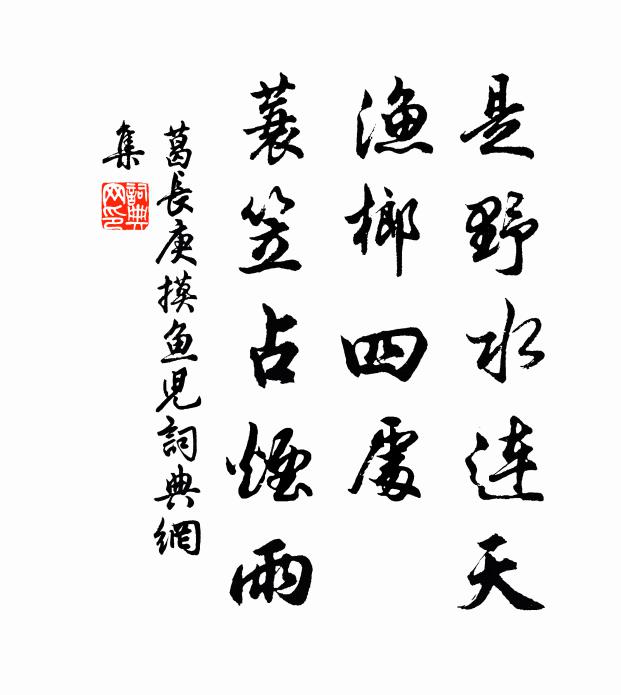 是野水連天
漁榔四處
蓑笠占煙雨
葛長庚摸魚児詞典網
集
詞典
网印